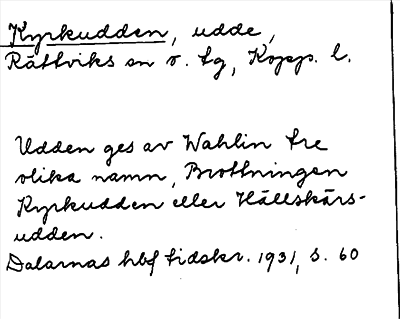 Kyrkudden, udde,
Rättviks sn o. tg, Kopp. l.
Udden ges av Wahlin tre
olika namn, Brottningen
Kyrkudden eller Hällskärs-
udden.
Dalarnas hbf tidskr. 1931, s. 60